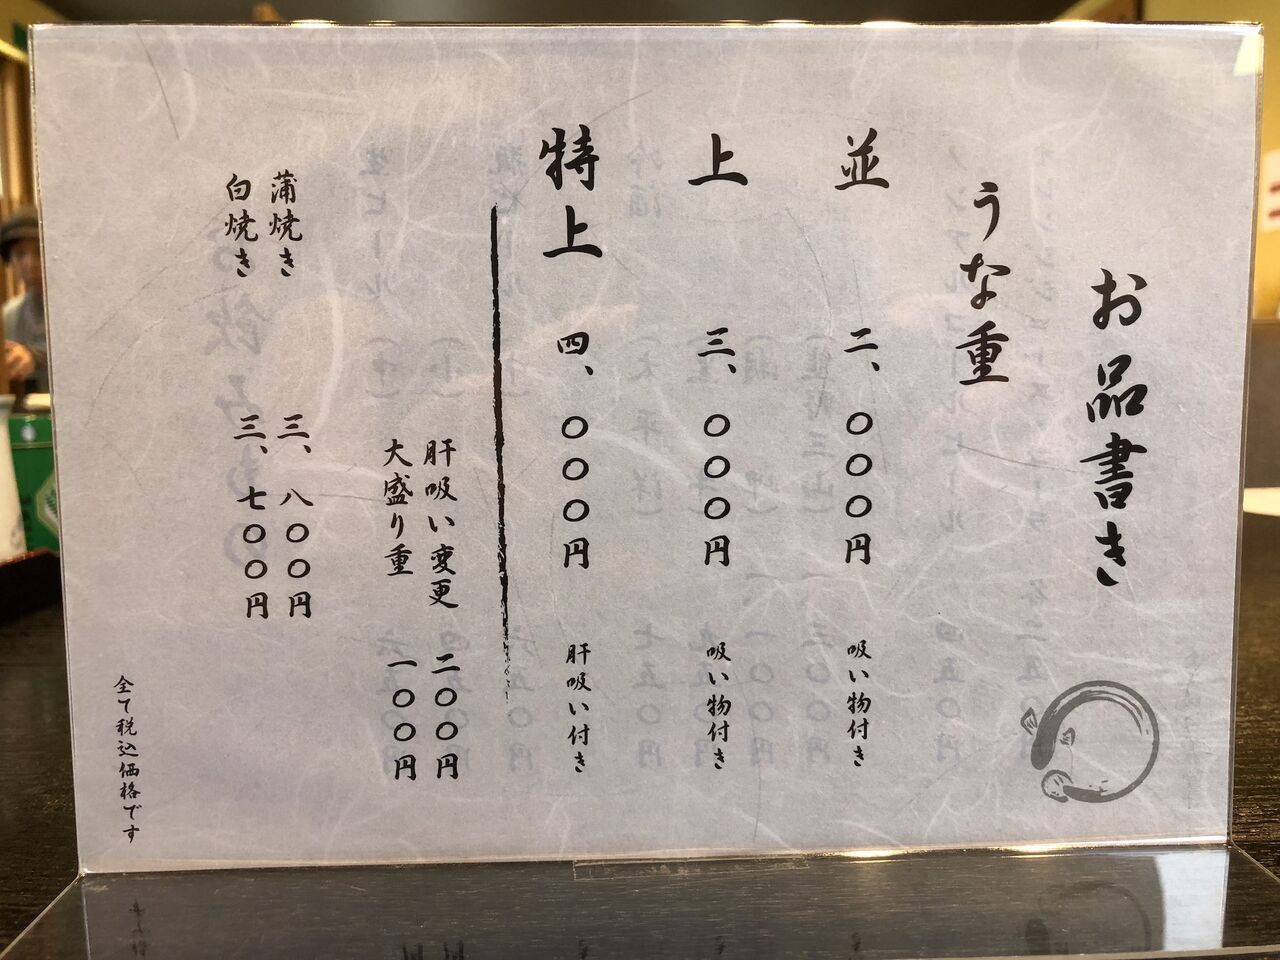 お品書き
うな重
並 二、〇〇〇円 吸い物付き
上 三、〇〇〇円 吸い物付き
特上 四、〇〇〇円 肝吸い付き
肝吸い変更 二〇〇円
大盛り重 一〇〇円
蒲焼き 三、八〇〇円
白焼き 三、七〇〇円
全て税込価格です